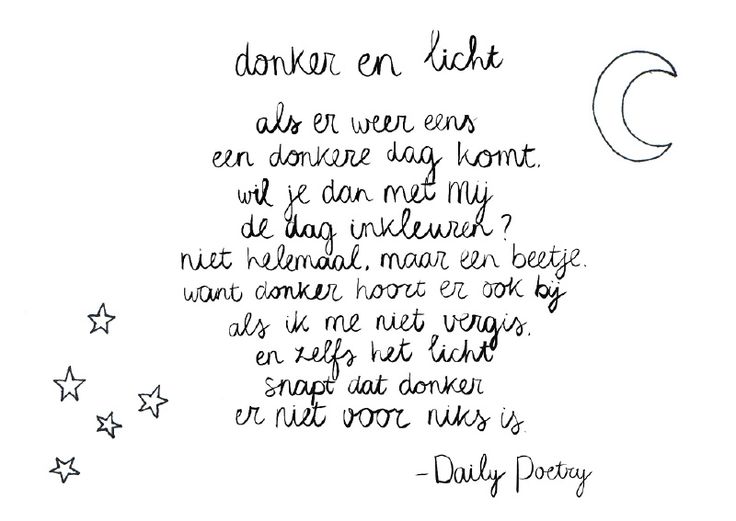 donker en licht
als er weer eens
een donkere dag komt.
wil je dan met mij
de dag inkleuren?
niet helemaal, maar een beetje.
want donker hoort er ook bij
als ik me niet vergis.
en zelfs het licht
snapt dat donker
er niet voor niks is.
-Daily Poetry